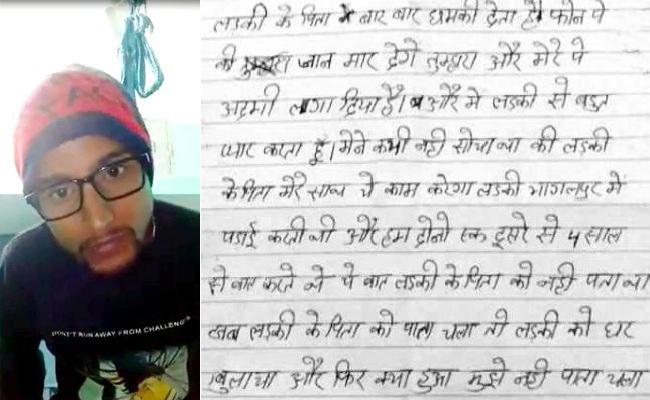 DON'T RUN AWAY FROM CHALLENGES
लडकी के पिता बार बार धमकी देता है। फोन पे
की जान मार देंगे तुम्हारा और मेरे पे
अदमी लागा दिया है। और मे लडकी से बहुत
प्यार करता हूँ। मेने कभी नही सोचा था की लडकी
के पिता मेरे साथ ये काम करेगा लडकी भागलपुर में
पढाई करती थी और हम दोनो एक दूसरे से 4 साल
से बात करते थे ये बात लडकी के पिता को नही पता था
जब लडकी के पिता को पाता चला तो लडकी को घर
बुलाया और फिर क्या हुआ मुझे नही पाता चला